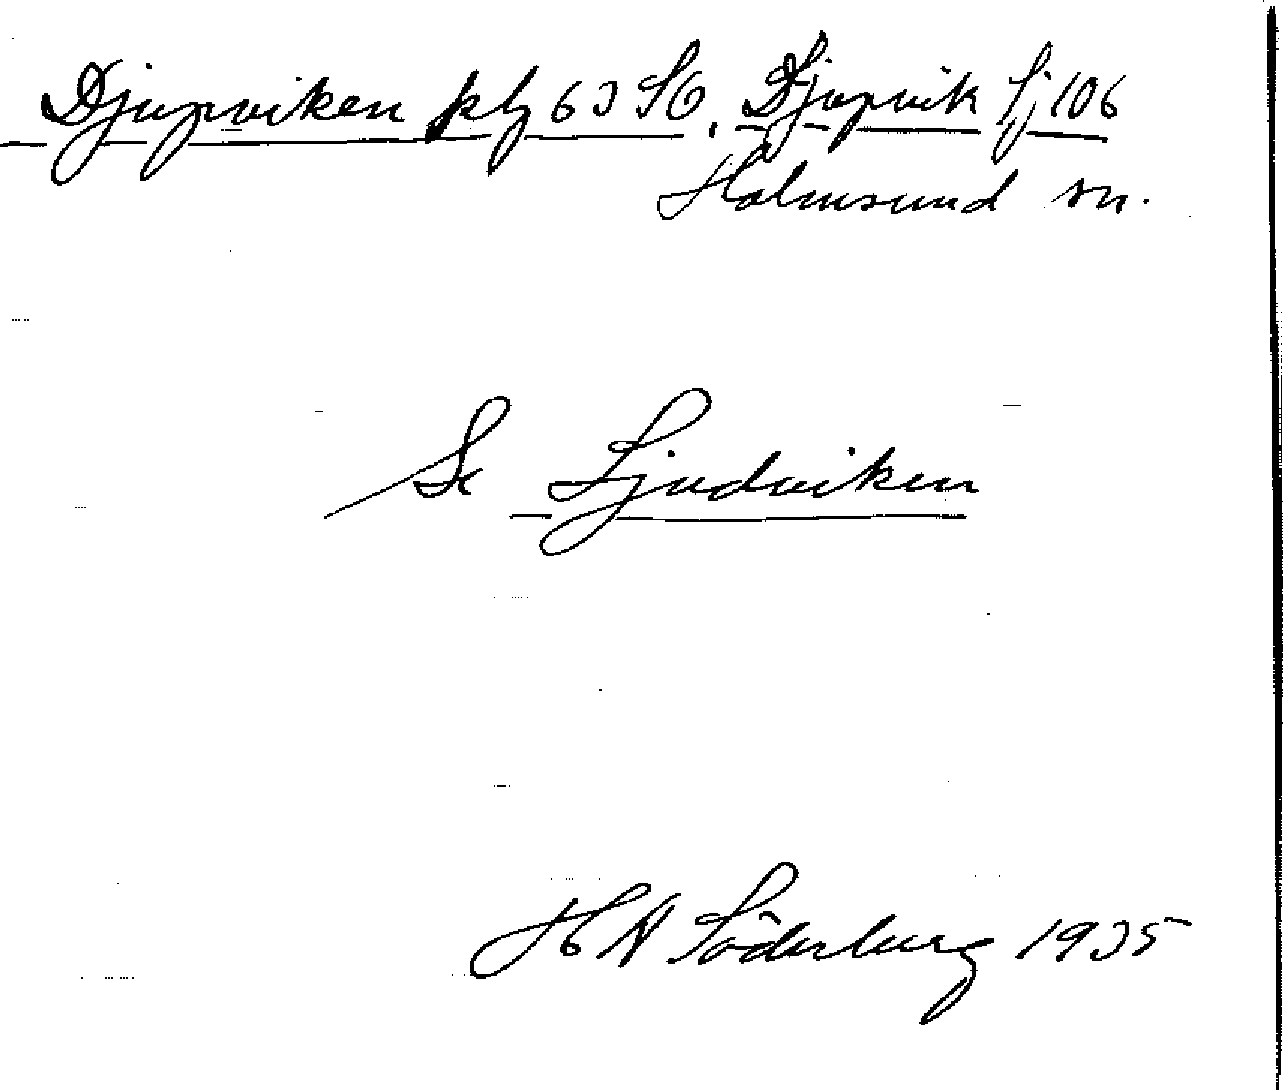 Djupviken kbl 63 SO, Djupvik Sj 106
Holmsund sn.
Se Sjudviken
H N Söderberg 1935